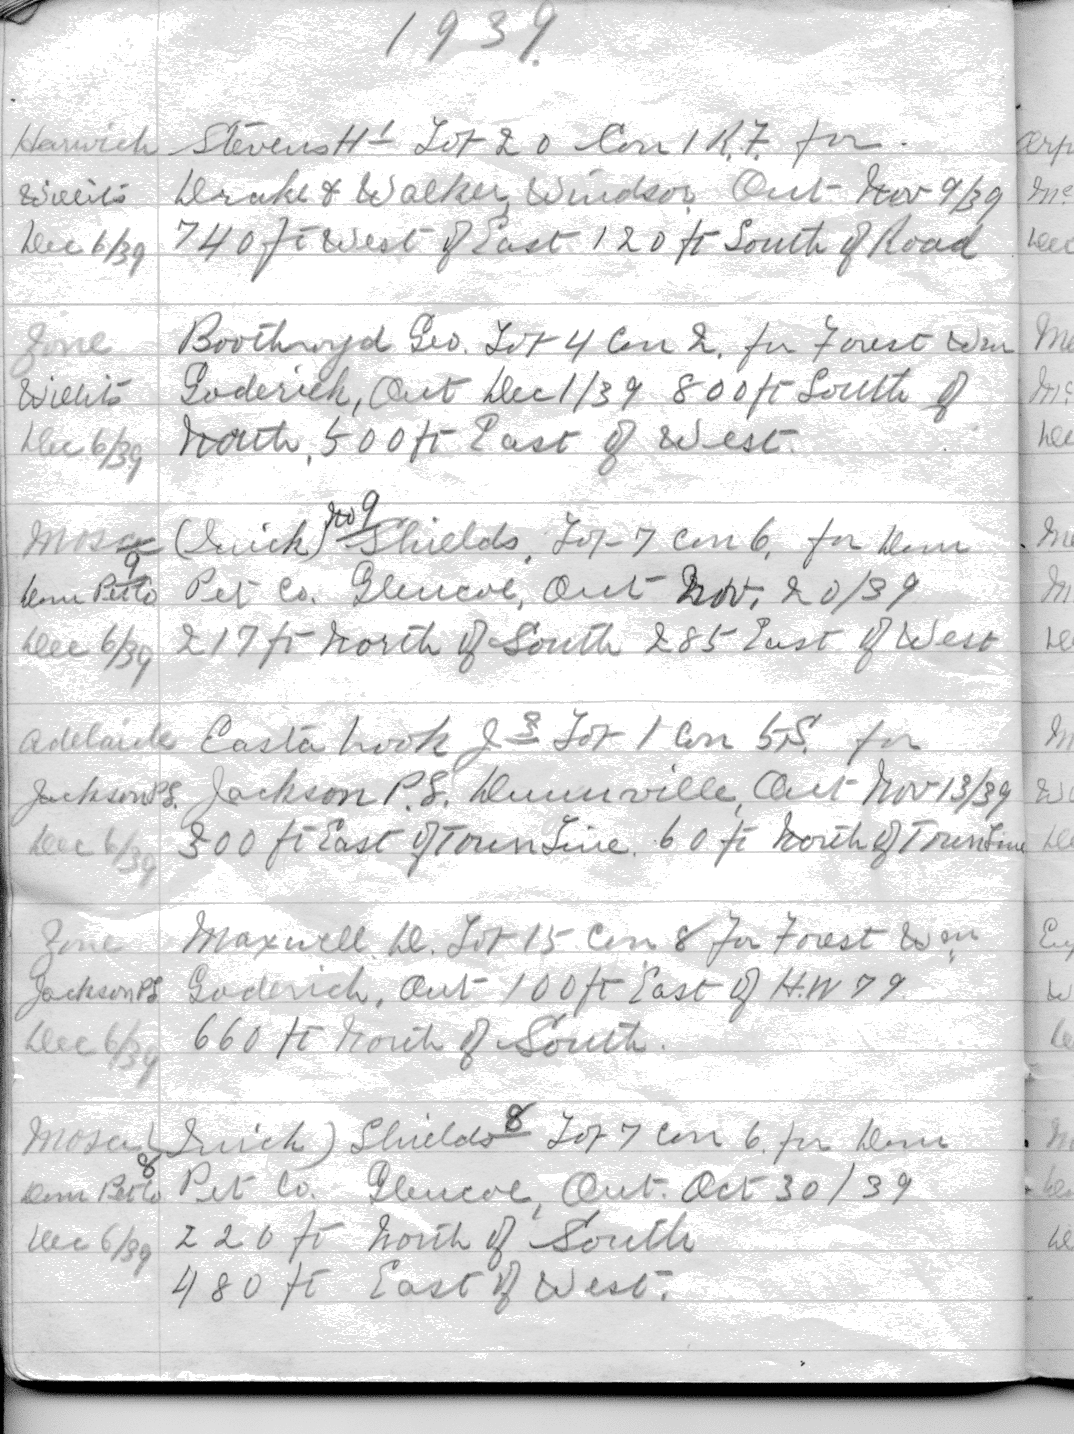 1939.
Harwich Stevens H¹ Lot 20 Con 1 R.F. for
Willits Drake & Walker, Windsor, Ont Nov 9/39
Dec 6/39 740 ft West of East 120 ft South of Road
Zone Boothroyd Geo. Lot 4 Con 2, for Forest Wm
Willits Goderich, Ont Dec 1/39 800 ft South of
Dec 6/39 North, 500 ft East of West.
Mosa (Quick) No 9 Shields, Lot 7 Con 6, for Dom
Dom Pet Co 9 Pet Co. Glencoe, Ont Nov. 20/39
Dec 6/39 217 ft North of South 285 East of West
Adelaide Eastabrook J 3 Lot 1 Con 5 S. for
Jackson P.S. Jackson P.S. Dunnville, Ont Nov 13/39
Dec 6/39 300 ft East of Town Line. 60 ft North of Town Line
Zone Maxwell D. Lot 15 Con 8 For Forest Wm
Jackson PS Goderich, Ont 100 ft East of H.W 79
Dec 6/39 660 ft North of South.
Mosa (Quick) Shields 8 Lot 7 Con 6. for Dom
Dom Pet Co 8 Pet Co. Glencoe, Ont. Oct 30/39
Dec 6/39 220 ft North of South
480 ft East of West.